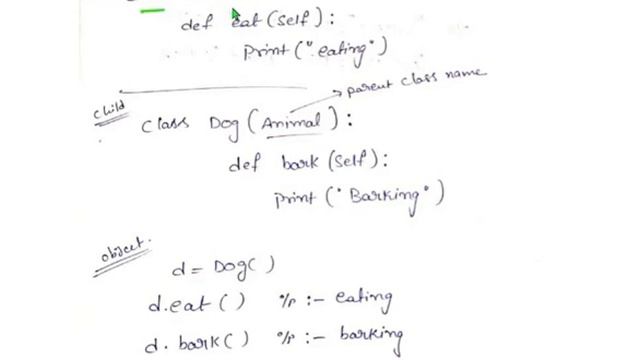 def eat(self):
Print("eating")
parent class name
child
class Dog(Animal):
def bark(self):
Print("Barking")
object.
d = Dog()
d.eat() o/p :- eating
d.bark() o/p :- barking